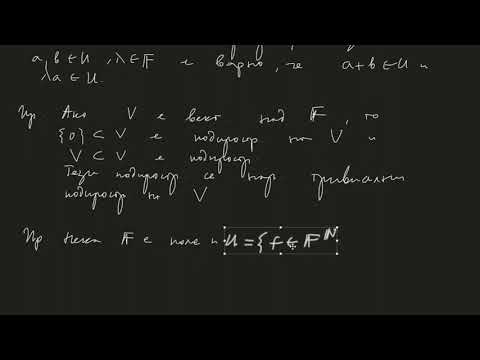 a, b ∈ U, λ ∈ 𝔽 е вярно, че a+b ∈ U и
λa ∈ U.
Пр Ако V е вект над 𝔽, то
{0} ⊂ V е подпростр на V и
V ⊂ V е подпростр
Тези подпростр се нар тривиални
подпростр на V
Пр Нека 𝔽 е поле и U = { f ∈ 𝔽^ℕ